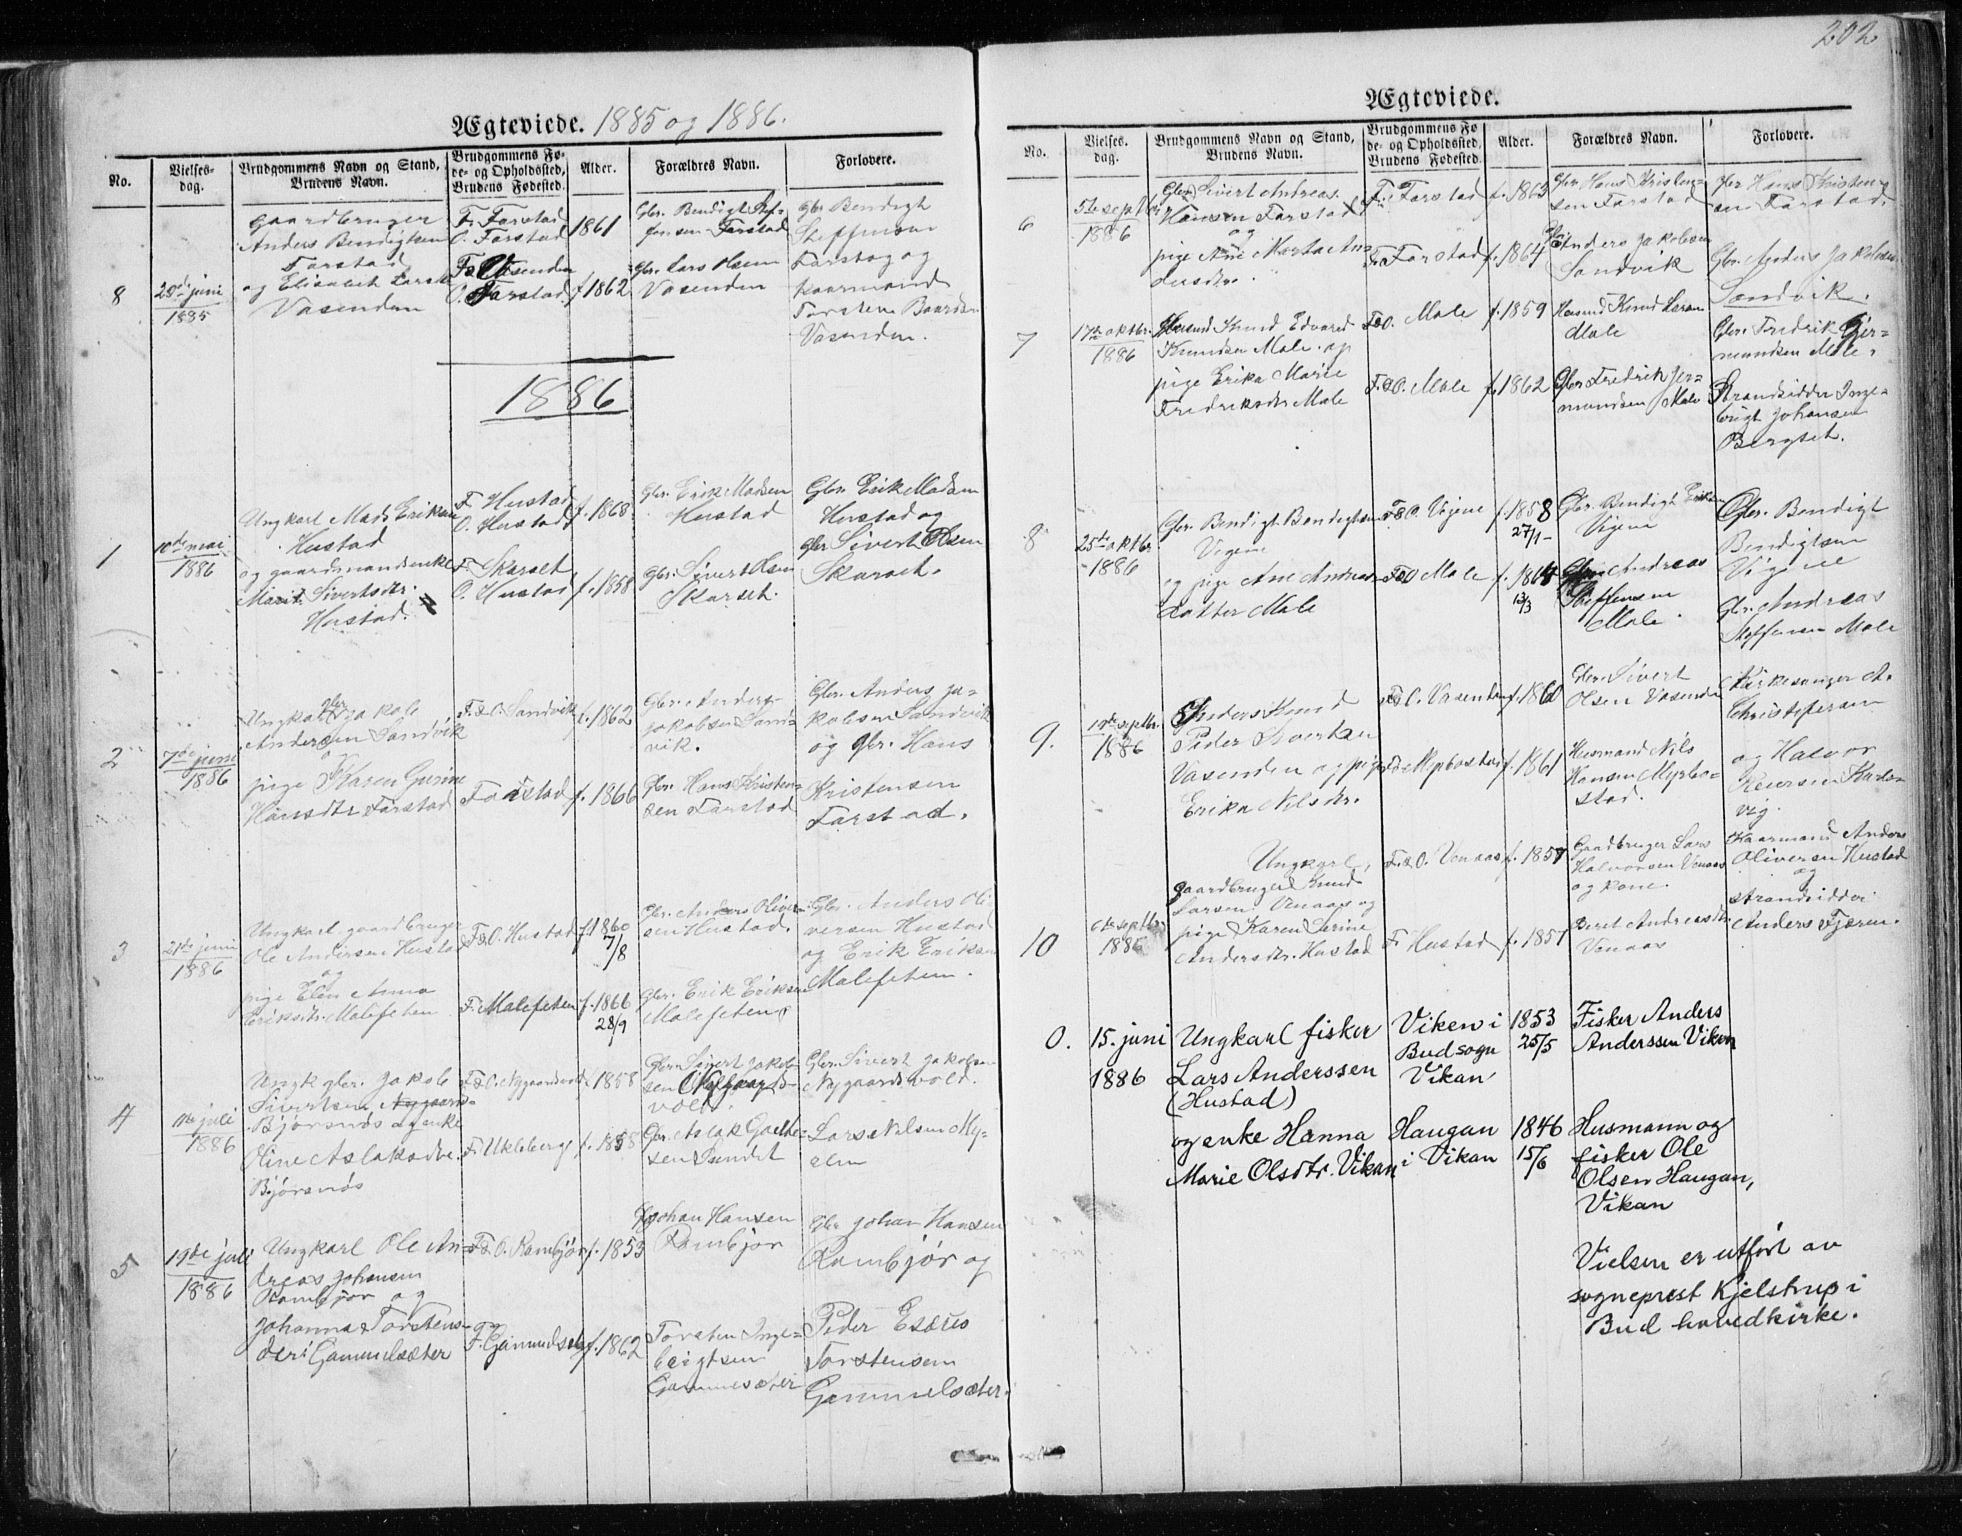 Ægteviede. 1885 og 1886.
No.
Vielses-
dag.
Brudgommens Navn og Stand,
Brudens Navn.
Brudgommens Fø-
de- og Opholdssted,
Brudens Fødested.
Alder.
Forældres Navn.
Forlovere.
8
28de juni
1885
Gaardbruger
Anders Bendigtsen
Farstad
og Elisabet Larsdtr
Vasenden
F. Farstad
O. Farstad
F. Vasenden
O. Farstad
1861
f. 1862
Gbr. Bendigt Stef-
fensen Farstad
Gbr. Lars Olsen
Vasenden
Gbr Bendigt
Steffensen
Farstad og
kaarmand
Torsten Baardsen
Vasenden.
1886
1
10de mai
1886
Ungkarl Mads Eriksen
Hustad
og gaardmandsenke
Marit Sivertsdtr.
Hustad.
F. Hustad
O. Hustad
F. Skarset
O. Hustad
f. 1868
f. 1858
Gbr. Erik Madsen
Hustad
Gbr. Sivert Olsen
Skarset.
Gbr. Erik Madsen
Hustad og
gbr Sivert Olsen
Skarset.
2
7de juni
1886
Ungkarl gbr Jakob
Andersen Sandvik
og
pige Karen Gurine
Hansdtr Farstad
F. & O. Sandvik
Farstad
f. 1862
f. 1866
Gbr. Anders
Jakobsen Sand-
vik.
Gbr. Hans Kristen-
sen Farstad
Gbr. Anders Ja-
kobsen Sandvik
og gbr. Hans
Kristensen
Farstad.
3
21de juni
1886
Ungkarl gaardbruger
Ole Andersen Hustad
og
pige Elen Anna
Eriksdtr. Malefeten
F. & O. Hustad
F. Malefeten
f. 1860
7/8
f. 1866
28/9
Gbr. Anders Oliver-
sen Hustad.
Gbr. Erik Eriksen
Malefeten
Gbr. Anders Oli-
versen Hustad
og Erik Eriksen
Malefeten.
4
11te juli
1886
Ungk gbr. Jakob
Sivertsen Nygaards-
Bjørsnøs & enke
Oline Aslaksdtr.
Bjørsnøs
F. & O. Nygaardsvold
F. Ukleberg
f. 1858
f. 1858
Gbr. Sivert Jakob-
sen Nygaards-
vold.
Gbr. Aslak
sen Sundet
Gbr. Sivert Jakobsen
Nygaardsvold.
Lars Nilsen My-
5
19de juli
1886
Ungkarl Ole An-
dreas Johansen
Rambjør og
Johanna Torstens-
dtr. Gammelsæter
F. & O. Rambjør
F. Gammelsæter
f. 1853
f. 1862
Johan Hansen
Rambjør
Torsten Inge-
brigtsen
Gammelsæter
Gbr Johan Hansen
Rambjør og
Peder
Torstensen
Gammelsæter.
202
Ægteviede.
No.
Vielses-
dag.
Brudgommens Navn og Stand,
Brudens Navn.
Brudgommens Fø-
de- og Opholdssted,
Brudens Fødested.
Alder.
Forældres Navn.
Forlovere.
6
5te septbr
1886
Gbr. Sivert Andreas
Hansen Farstad
og
pige Ane Marta An-
dersdtr.
F. Farstad
F. Farstad
f. 1863
f. 1864
Gbr. Hans Kristen-
sen Farstad
Gbr. Anders Jakobsen
Sandvik
Gbr Hans Kristen-
sen Farstad.
Gbr. Anders Jakobsen
Sandvik.
7
17de oktbr.
1886
Husmd Knud Edvard
Knudsen Male og
pige Erika Marie
Fredriksdtr Male
F & O. Male
F. & O. Male
f. 1859
f. 1862
Husmd Knud Larsen
Male
Gbr. Fredrik Jer-
mundsen Male
Gbr. Fredrik Gjer-
mundsen Male,
Strandsidder Inge-
brigt Johansen
Bergset.
8
25de oktbr.
1886
Gbr. Bendigt Bendigtsen
Vigene
og pige Ane Andreas-
datter Male
F & O. Vigene
F & O Male
f. 1858
27/1
f. 1864
13/3
Gbr. Bendigt Eriksen
Vigene
Gbr. Andreas
Steffensen
Male.
Gbr. Bendigt
Bendigtsen
Vigene
Gbr. Andreas
Steffensen Male
9.
19de septbr.
1886
Knud
Peder Sivertsen
Vasenden og pige
Erika Nilsdtr.
F & O. Vasenden
Myrbostad
f. 1860
f. 1861
Gbr. Sivert
Olsen Vasenden
Husmand Nils
Hansen Myrbo-
stad.
Kirkesanger A.
Christophersen
og Halvor
vig.
10
6te septbr.
1886
Ungkarl,
gaardbruger Knud
Larsen Vonaas og
pige Karen Serine
Andersdtr. Hustad
F. & O. Vonaas
F. Hustad
f. 1857
f. 1857
Gaardbruger Lars
Halvorsen Vonaas
og kone
Beret Andreasdtr.
Vonaas
Kaarmand Anders
Oliversen Hustad
og
strandsidder
Anders Fjæren.
0.
15. juni
1886
Ungkarl fisker
Lars Anderssen
(Hustad)
og enke Hanna
Marie Olsdtr. Vikan
Viken i
Bud sogn
Vikan
Haugan
i Vikan
1853
25/5
1846
15/6
Fisker Anders
Anderssen Viken
Husmann og
fisker Ole
Olsen Haugan,
Vikan
Vielsen er utført av
sogneprest Kjelstrup i
Bud hovedkirke.